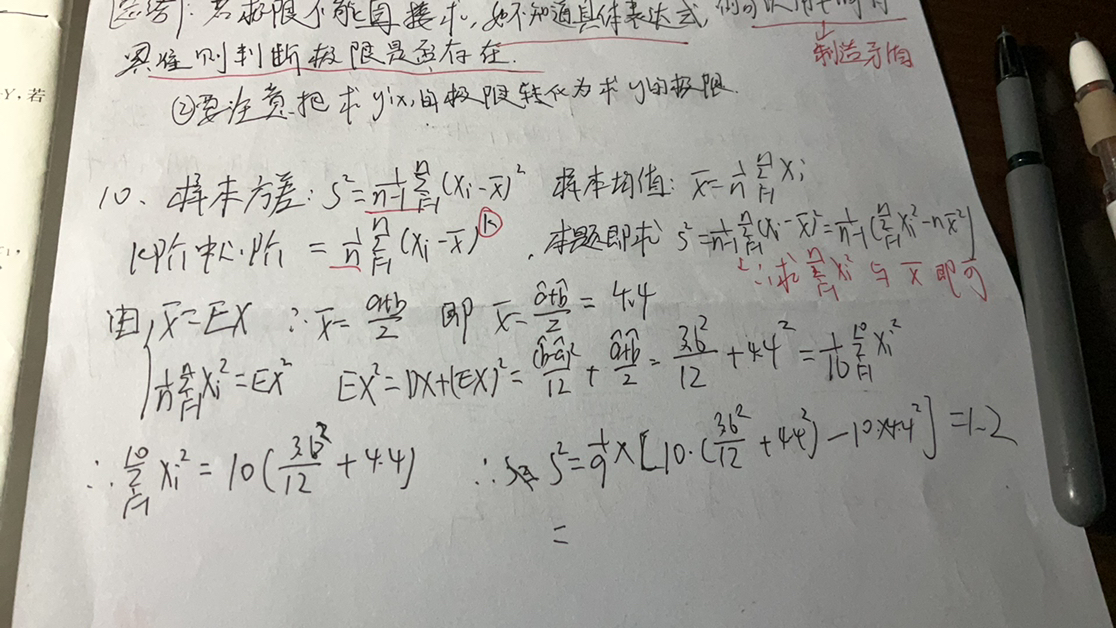 [总结]: 若极限不能直接求, 也不知道具体表达式, 则可以用
则判断极限是否存在. 制造矛盾
②要注意把求y'(x)的极限转化为求y的极限.
Y, 若
10、样本方差: S²=\frac{1}{n-1}\sum_{i=1}^{n}(X_i-\overline{X})² 样本均值: \overline{X}=\frac{1}{n}\sum_{i=1}^{n}X_i
K阶中心阶 = \frac{1}{n}\sum_{i=1}^{n}(X_i-\overline{X})^k , 本题即求 S²=\frac{1}{n-1}\sum_{i=1}^{n}(X_i-\overline{X})²=\frac{1}{n-1}(\sum_{i=1}^{n}X_i²-n\overline{X}²)
∴求\sum_{i=1}^{n}X_i²与\overline{X}即可
由 \overline{X}=EX ∴\overline{X}=\frac{a+b}{2} 即 \overline{X}=\frac{\hat{a}+\hat{b}}{2}=4.4
\frac{1}{n}\sum_{i=1}^{n}X_i²=EX² EX²=DX+(EX)²=\frac{(\hat{b}-\hat{a})²}{12}+\frac{\hat{a}+\hat{b}}{2}=\frac{3.6²}{12}+4.4²=\frac{1}{10}\sum_{i=1}^{10}X_i²
∴\sum_{i=1}^{10}X_i²=10(\frac{3.6²}{12}+4.4) ∴S²=\frac{1}{9}×[10·(\frac{3.6²}{12}+4.4²)-10×4.4²]=1.2
=